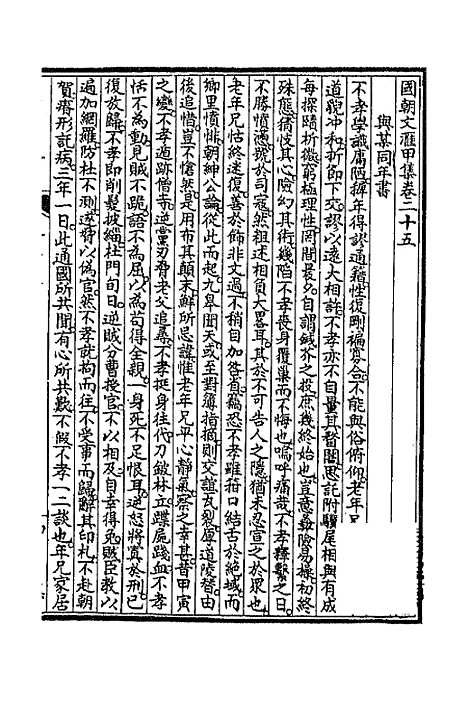 國朝文滙甲集卷二十五
與某同年書
不孝學識庸陋穉年得謬通籍性復剛褊寡合不能與俗俯仰老年兄
道貌冲和折節下交謬以遠大相許不孝亦不自量其暬闇思託附驥尾相與有成
每探賾析微窮極理性罔間晨夕自謂鍼芥之投庶幾終始也豈意險易操初終
殊態猜忮其心險幻其術幾陷不孝喪身覆巢而不悔也嗚呼痛哉不孝釋繫之日
不勝憤懣號於司寇然粗述相負大畧耳其於不可告人之隱猶未忍宣之於眾也
老年兄怙終迷復善於飾非文過不稍目加咎省竊恐不孝雖箝口結舌於絕域而
鄉里憤悱朝紳公論從此而起九皋聞天或至對簿指摘則交誼瓦裂厚道陵替由
後追惜豈不愴然是用布其顛末鮮所忌諱惟老年兄平心靜氣察之幸甚昔甲寅
之變不孝遁跡僧寺逆黨刃脅老父追尋不孝挺身往代刀鋸林立蹀屍踐血不孝
恬不為動見賊不跪語不為屈以為苟得全親一身死不足恨耳逆怒將寘於刑已
復放歸不孝即削髮披緇杜門旬日逆賊分曹授官不以相及自幸得免賊臣教以
遍加網羅防杜不測遂脅以偽官然不孝就拘而往不受事而歸辭其印札不赴朝
賀瘠形託病三年一日此通國所共聞有心所共歎不假不孝一二談也年兄家居